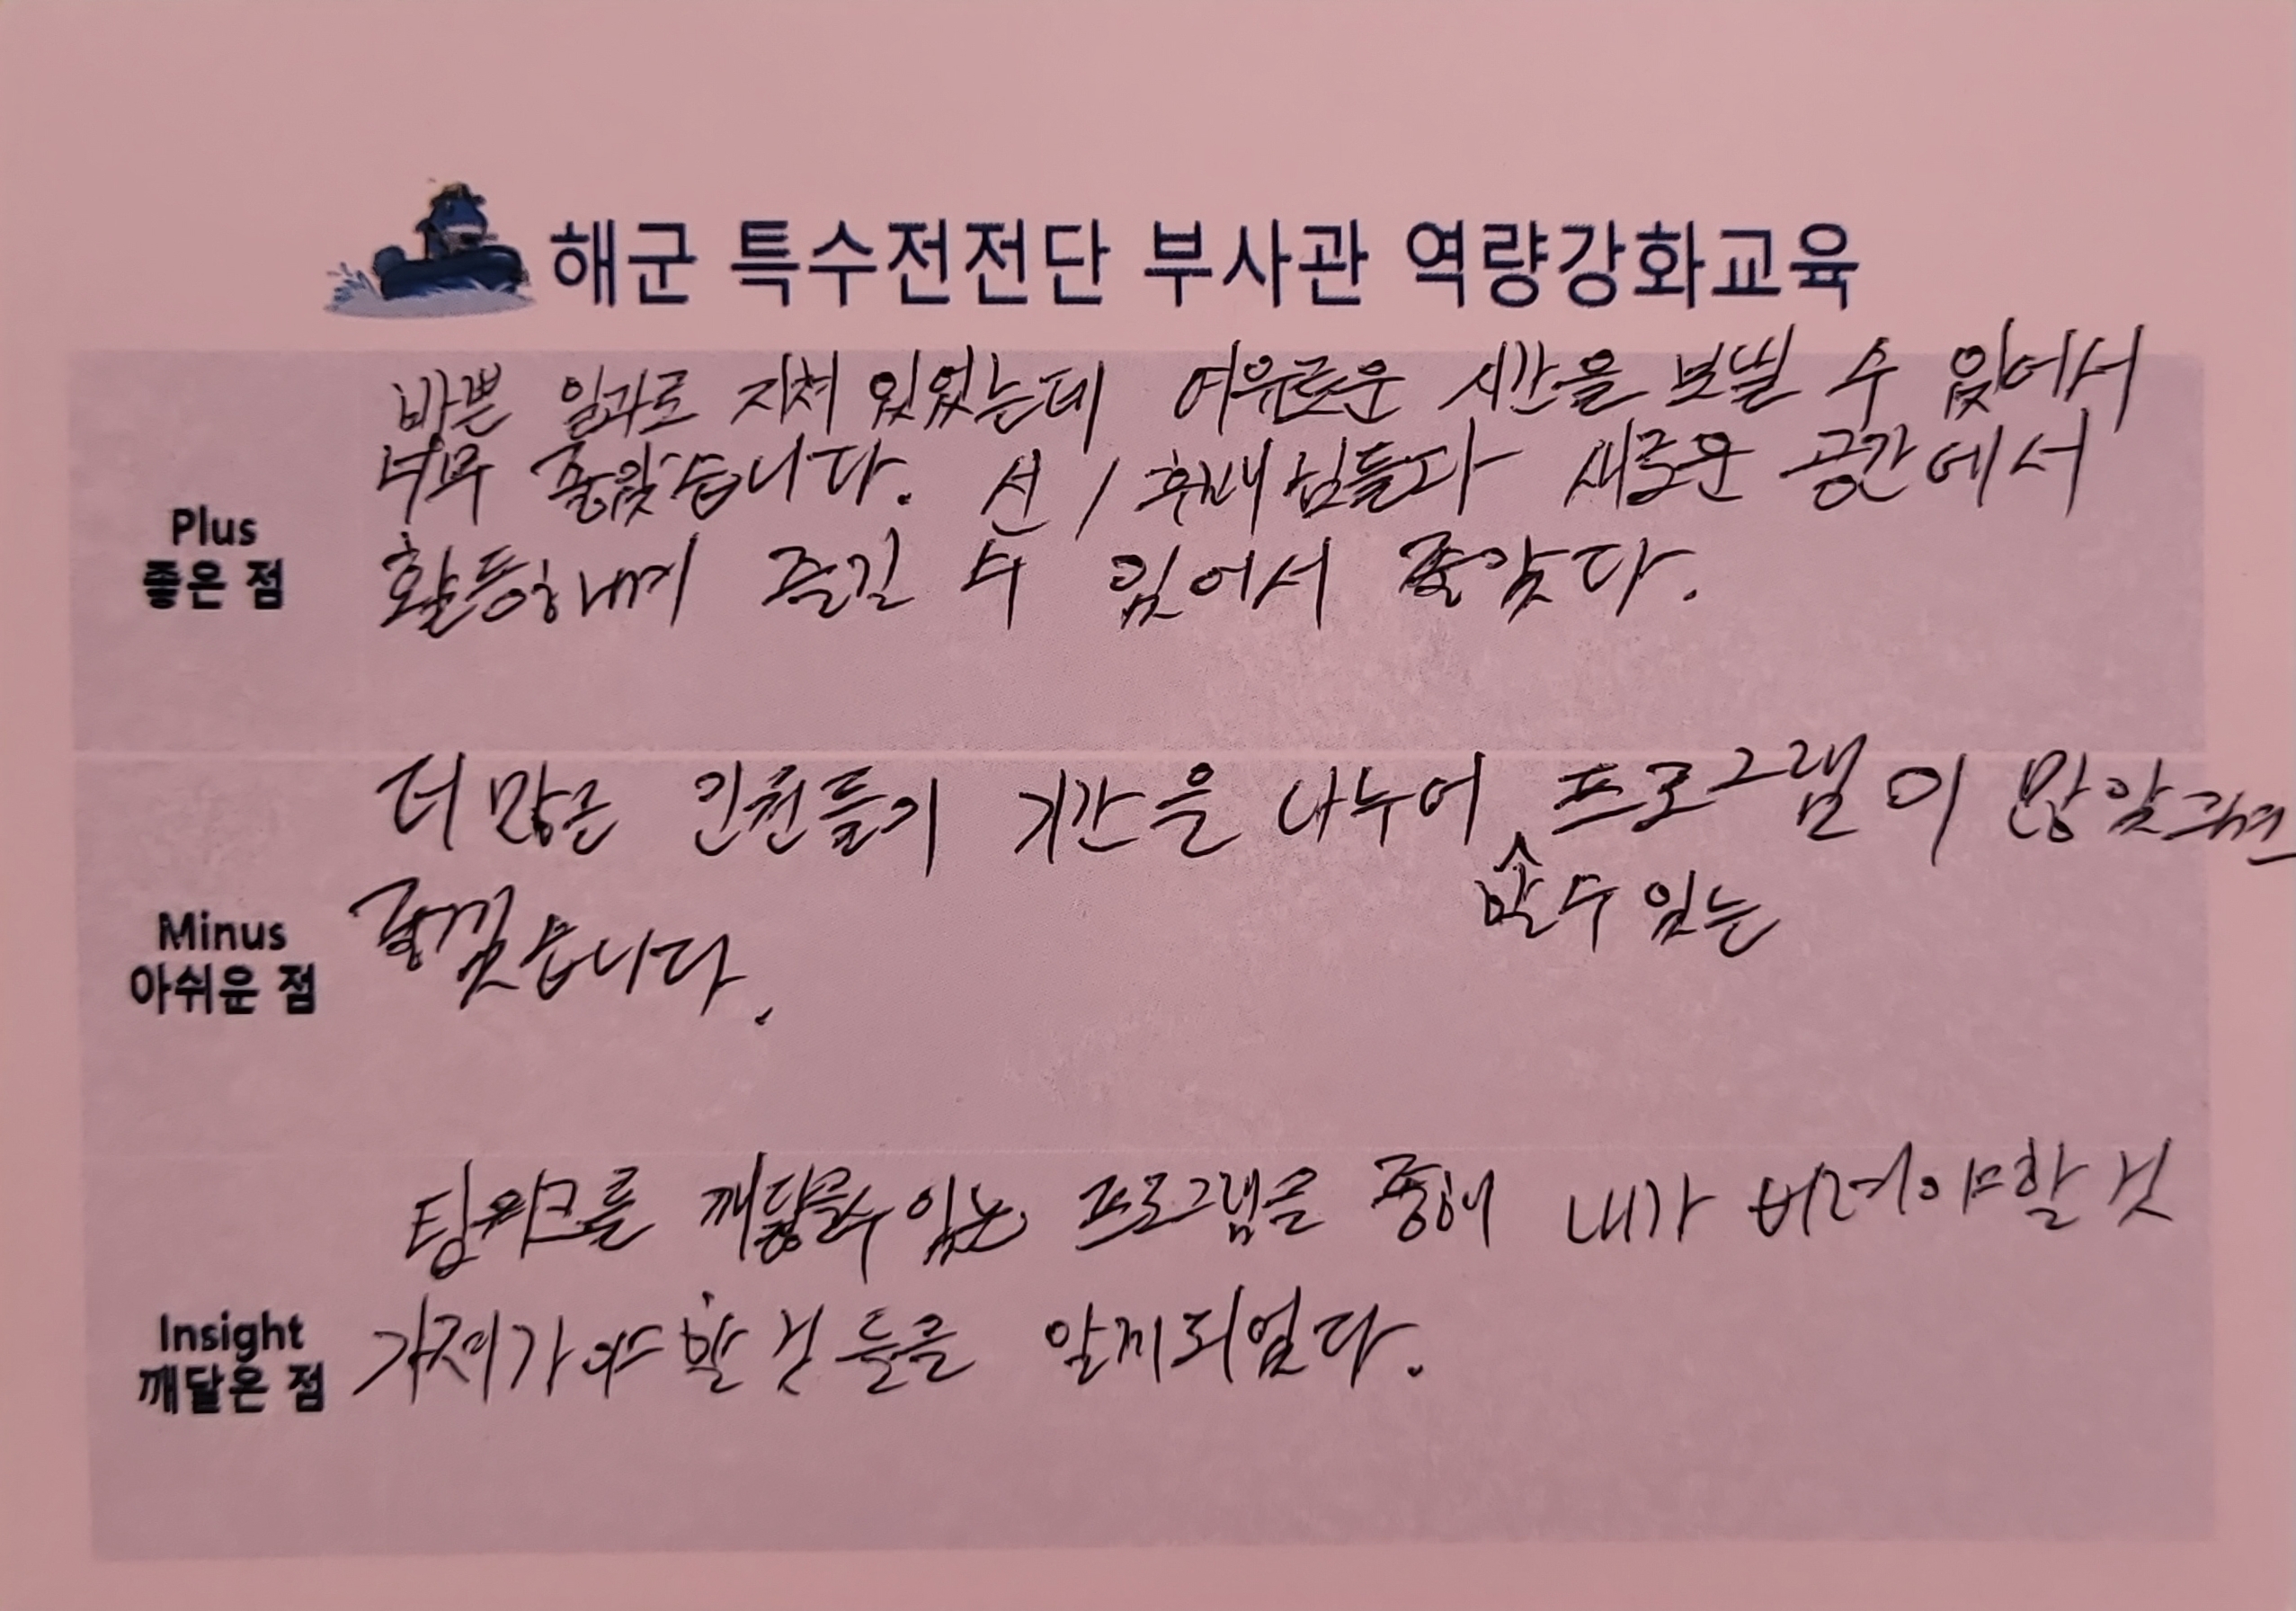 해군 특수전전단 부사관 역량강화교육
바쁜 일과로 지쳐 있었는데 여유로운 시간을 보낼 수 있어서
너무 좋았습니다. 선/후배님들과 새로운 공간에서
Plus
좋은 점
즐길 수 있어서 좋았다.
더 많은 인원들이 기간을 나누어 프로그램이 많았으면
할 수 있는
좋겠습니다.
Minus
아쉬운 점
팀워크를 깨달을수 있는 프로그램을 통해 내가 버려야할 것
Insight
깨달은 점
가져가야 할 것들을 알게되었다.